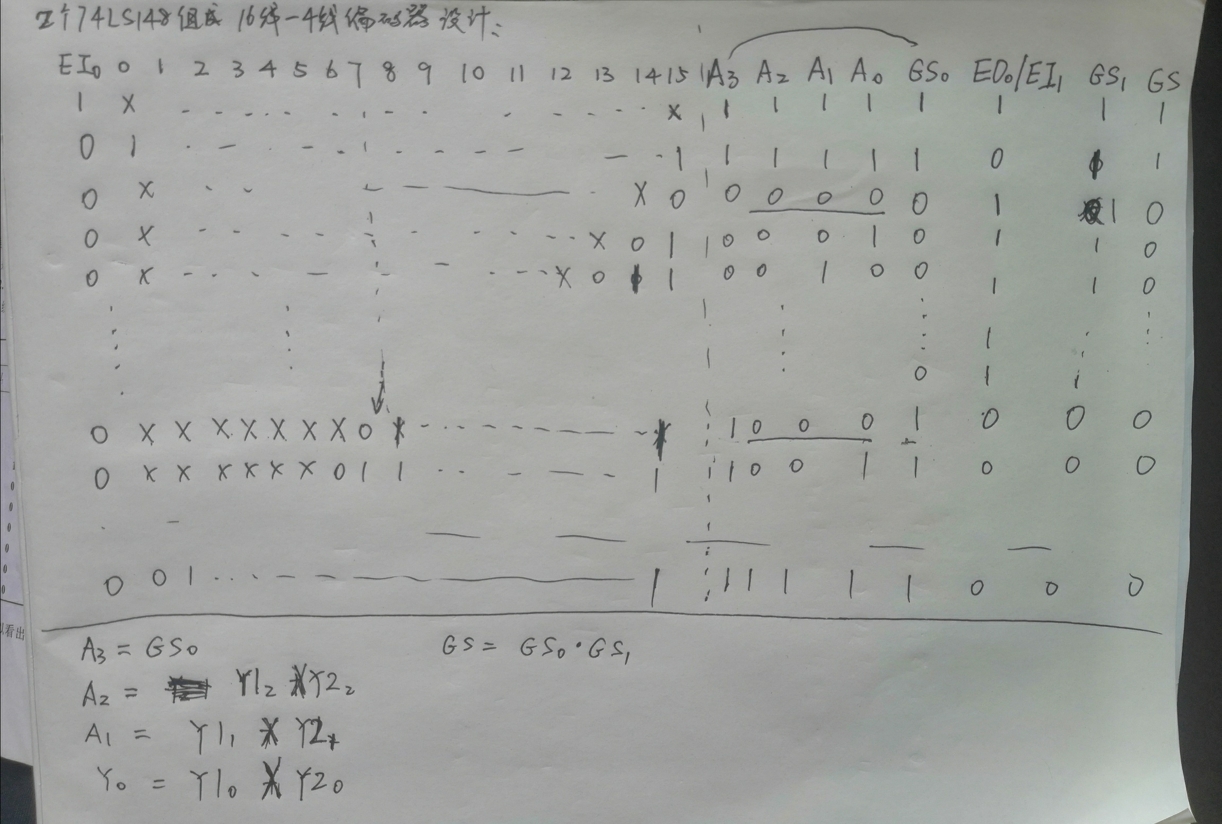 2个74LS148组成 16线-4线编码器设计:
EI₀ 0 1 2 3 4 5 6 7 8 9 10 11 12 13 14 15 A3 A2 A1 A0 GS₀ EO₀/EI₁ GS₁ GS
1 X - - - - - - - - - - - - - X 1 1 1 1 1 1 1 1
0 1 - - - - - - - - - - - - - 1 1 1 1 1 1 0 1
0 X - - - - - X 0 0 0 0 0 0 1 1 0
0 X - - - - - - - - - - - X 0 1 0 0 0 1 0 1 1 0
0 X - - - - - - - - - - X 0 1 1 0 0 1 0 0 1 1 0
1
0 1 1
0 X X X X X X X 0 - - - - - - - 1 0 0 0 1 0 0 0
0 X X X X X X 0 1 1 - - - - - 1 1 0 0 1 1 0 0 0
0 0 1 - - - - - - - 1 1 1 1 1 1 0 0 0
A3 = GS0 GS = GS₀·GS₁
A2 = Y1₂ X Y2₂
A1 = Y1₁ X Y2₁
Y0 = Y1₀ X Y2₀
看出